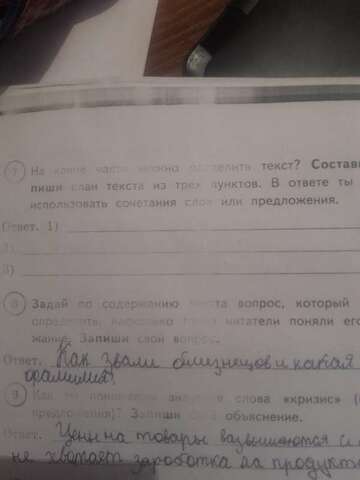 7 На какие части можно разделить текст? Состав
пиши план текста из трёх пунктов. В ответе ты
использовать сочетания слов или предложения.
Ответ. 1)
2)
3)
8 Задай по содержанию текста вопрос, который
определить, насколько точно читатели поняли его
жание. Запиши свой вопрос.
Ответ. Как звали близнецов и какая
фамилия?
9 Как ты понимаешь значение слова «кризис» (
предложения)? Запиши своё объяснение.
Ответ. Цены на товары возвышаются и
не хватает заработка на продукт